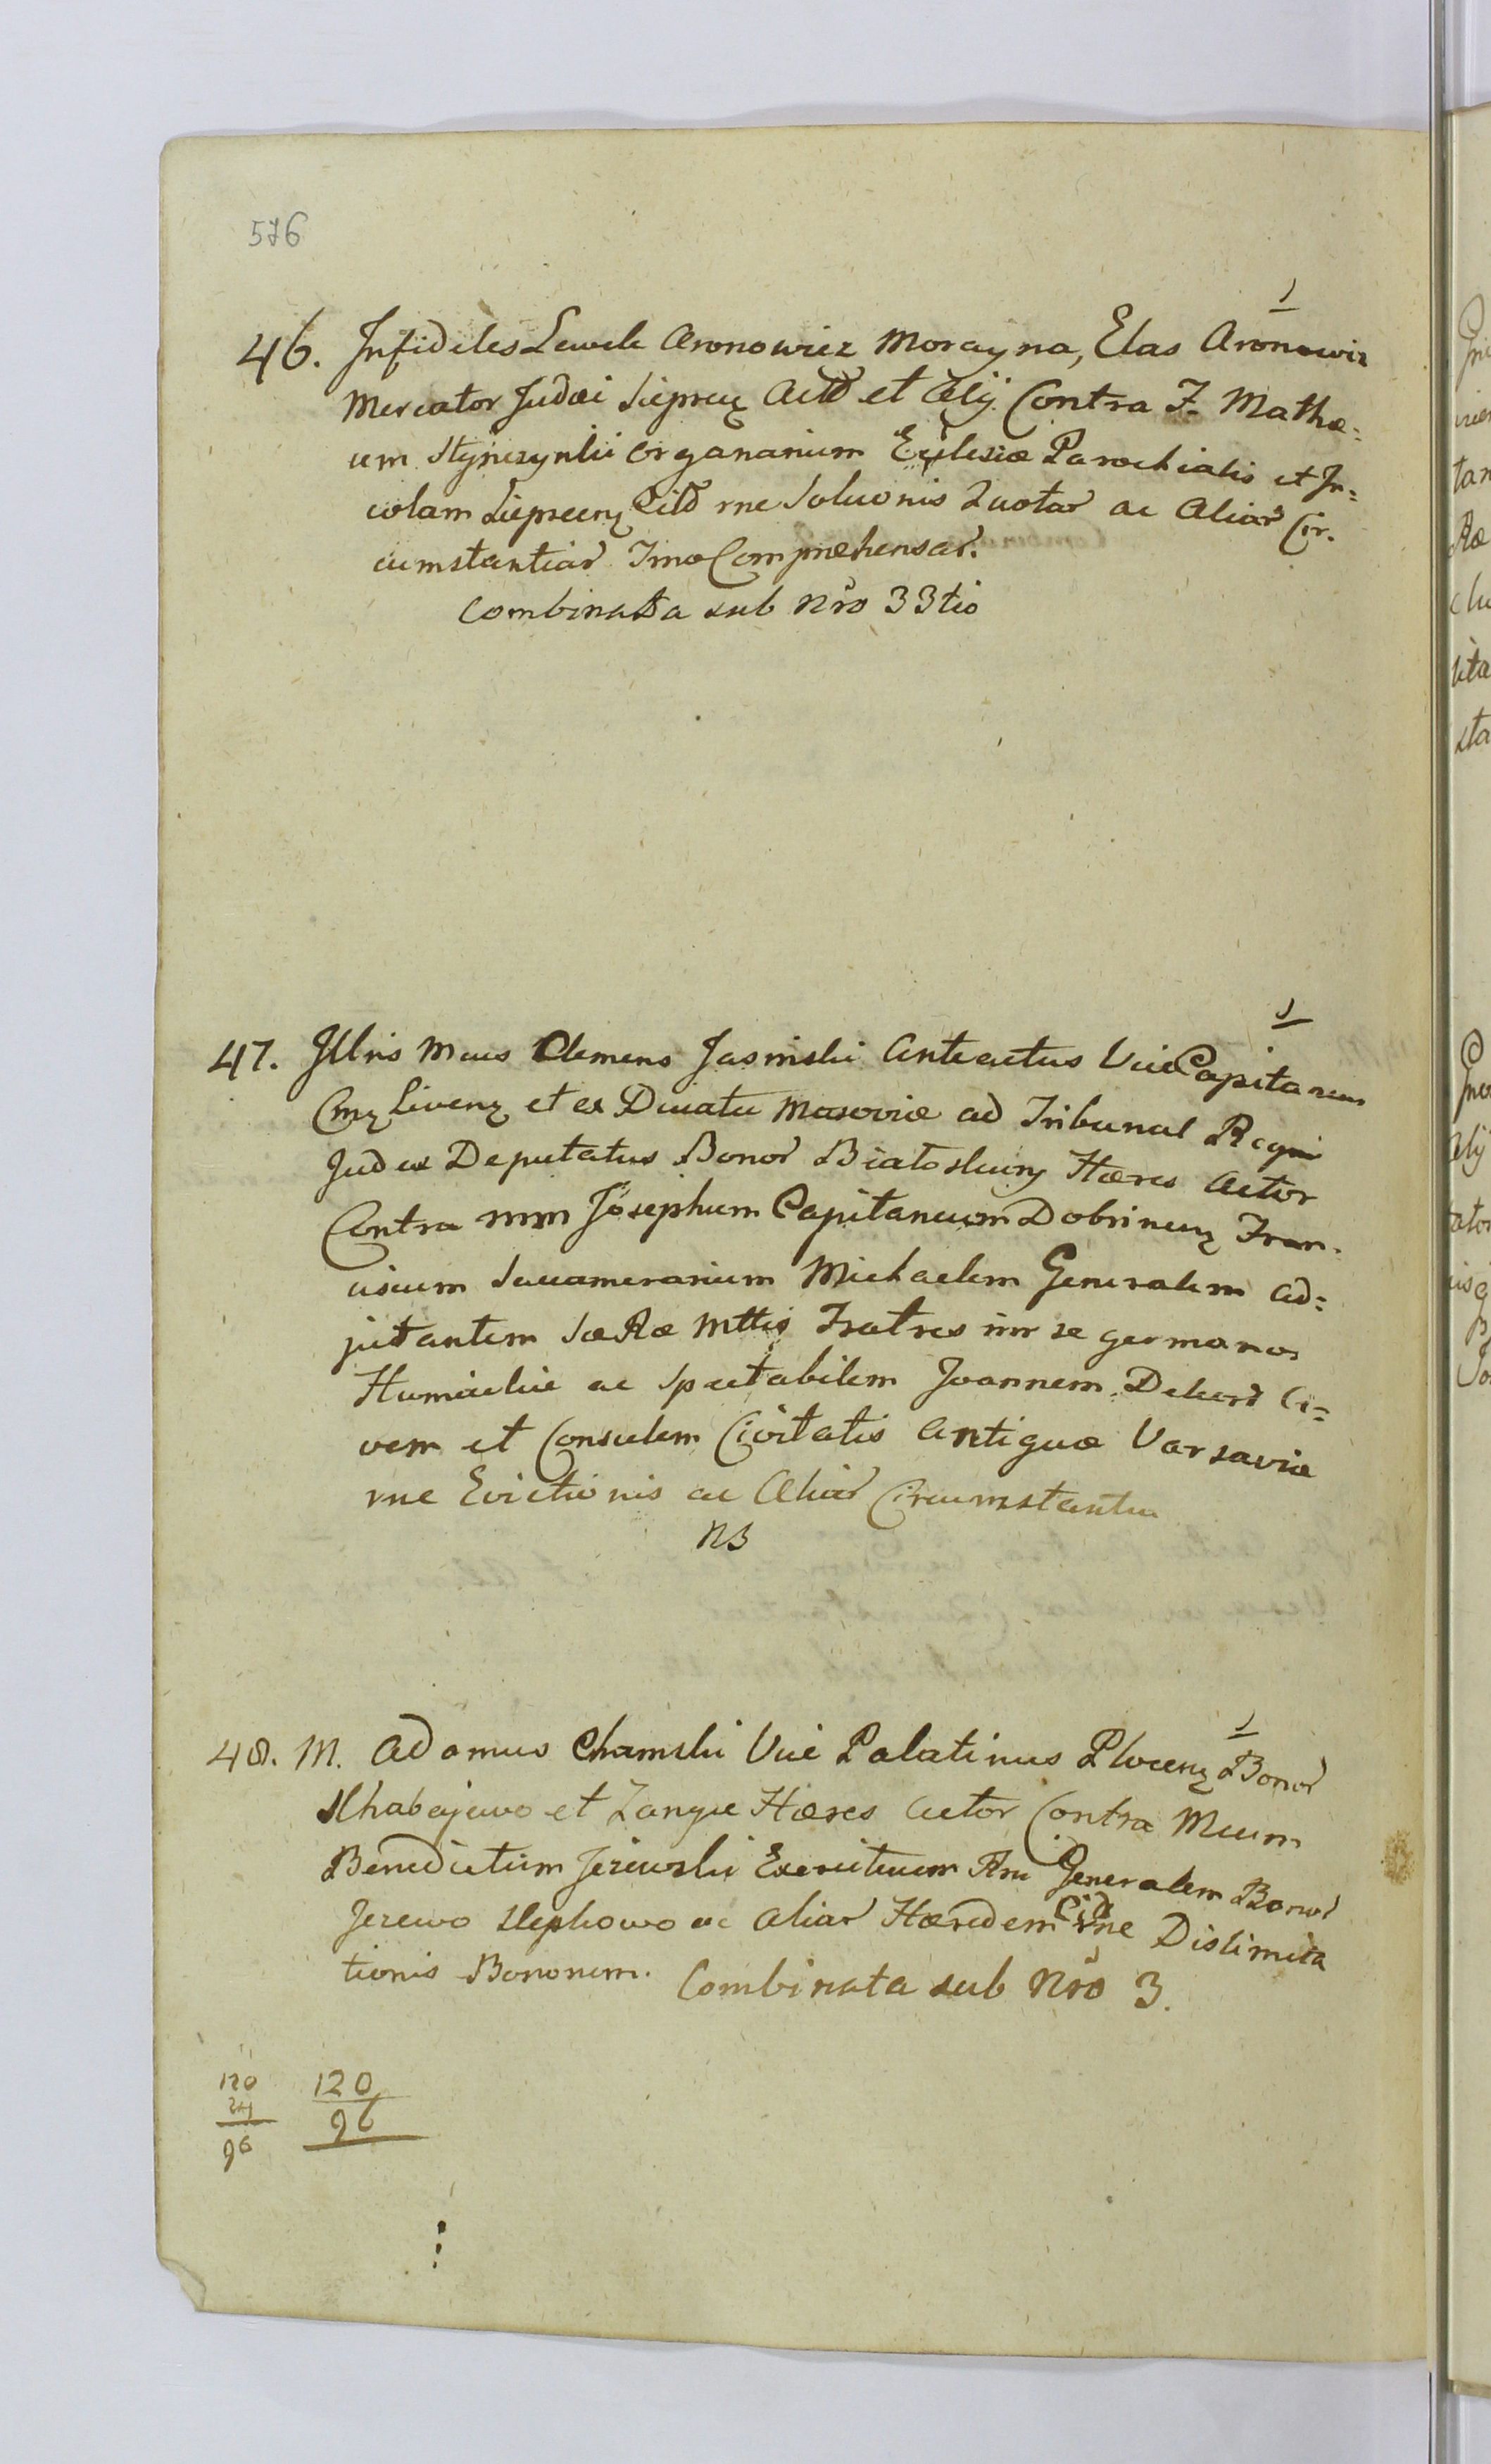 576
1
46. Infideles Lewek Aronowicz Morayna, Elas Aronowicz
Mercator Judæi Siepreen Actõ et Alij Contra F. Mathæ=
um organarium Ecclesiæ Parochialis et In=
colam Siepreen Citõ rne Soluonis Quotar ac Aliar Cir.
cumstantiar Imo Compræhensar.
Combinata sub Nro 33tio
1
47. Illris Mcus Clemens Jasinski Anteactus Vice Capitaneus
Livenz et ex Ducatu Masoviæ ad Tribunal Regni
Judex Deputatus Bonor Hæres Actor
Contra Mm Josephum Capitaneum Dobrinenz Fran=
ciscum Succamerarium Michaelem Generalem Ad=
jutantem Sæ Ræ Mttis Fratres inr se germanos
Humieckie ac Spectabilem Joannem Dekerd Ci=
vem et Consulem Civitatis Antiquæ Varsaviæ
rne Evictionis ac Aliar Circumstantia
NB
1
48. M. Adamus Chamski Vice Palatinus Plocenz Bonor
et Hæres Actor Contra Mcum
Benedictum Jezewski Exercituum Rni Generalem Bonor
Jezewo Slepkowo ac Aliar Hæredem Citõ rne Dislimita
tionis Bonorum. Combinata sub Nro 3.
120 120
24 96
96